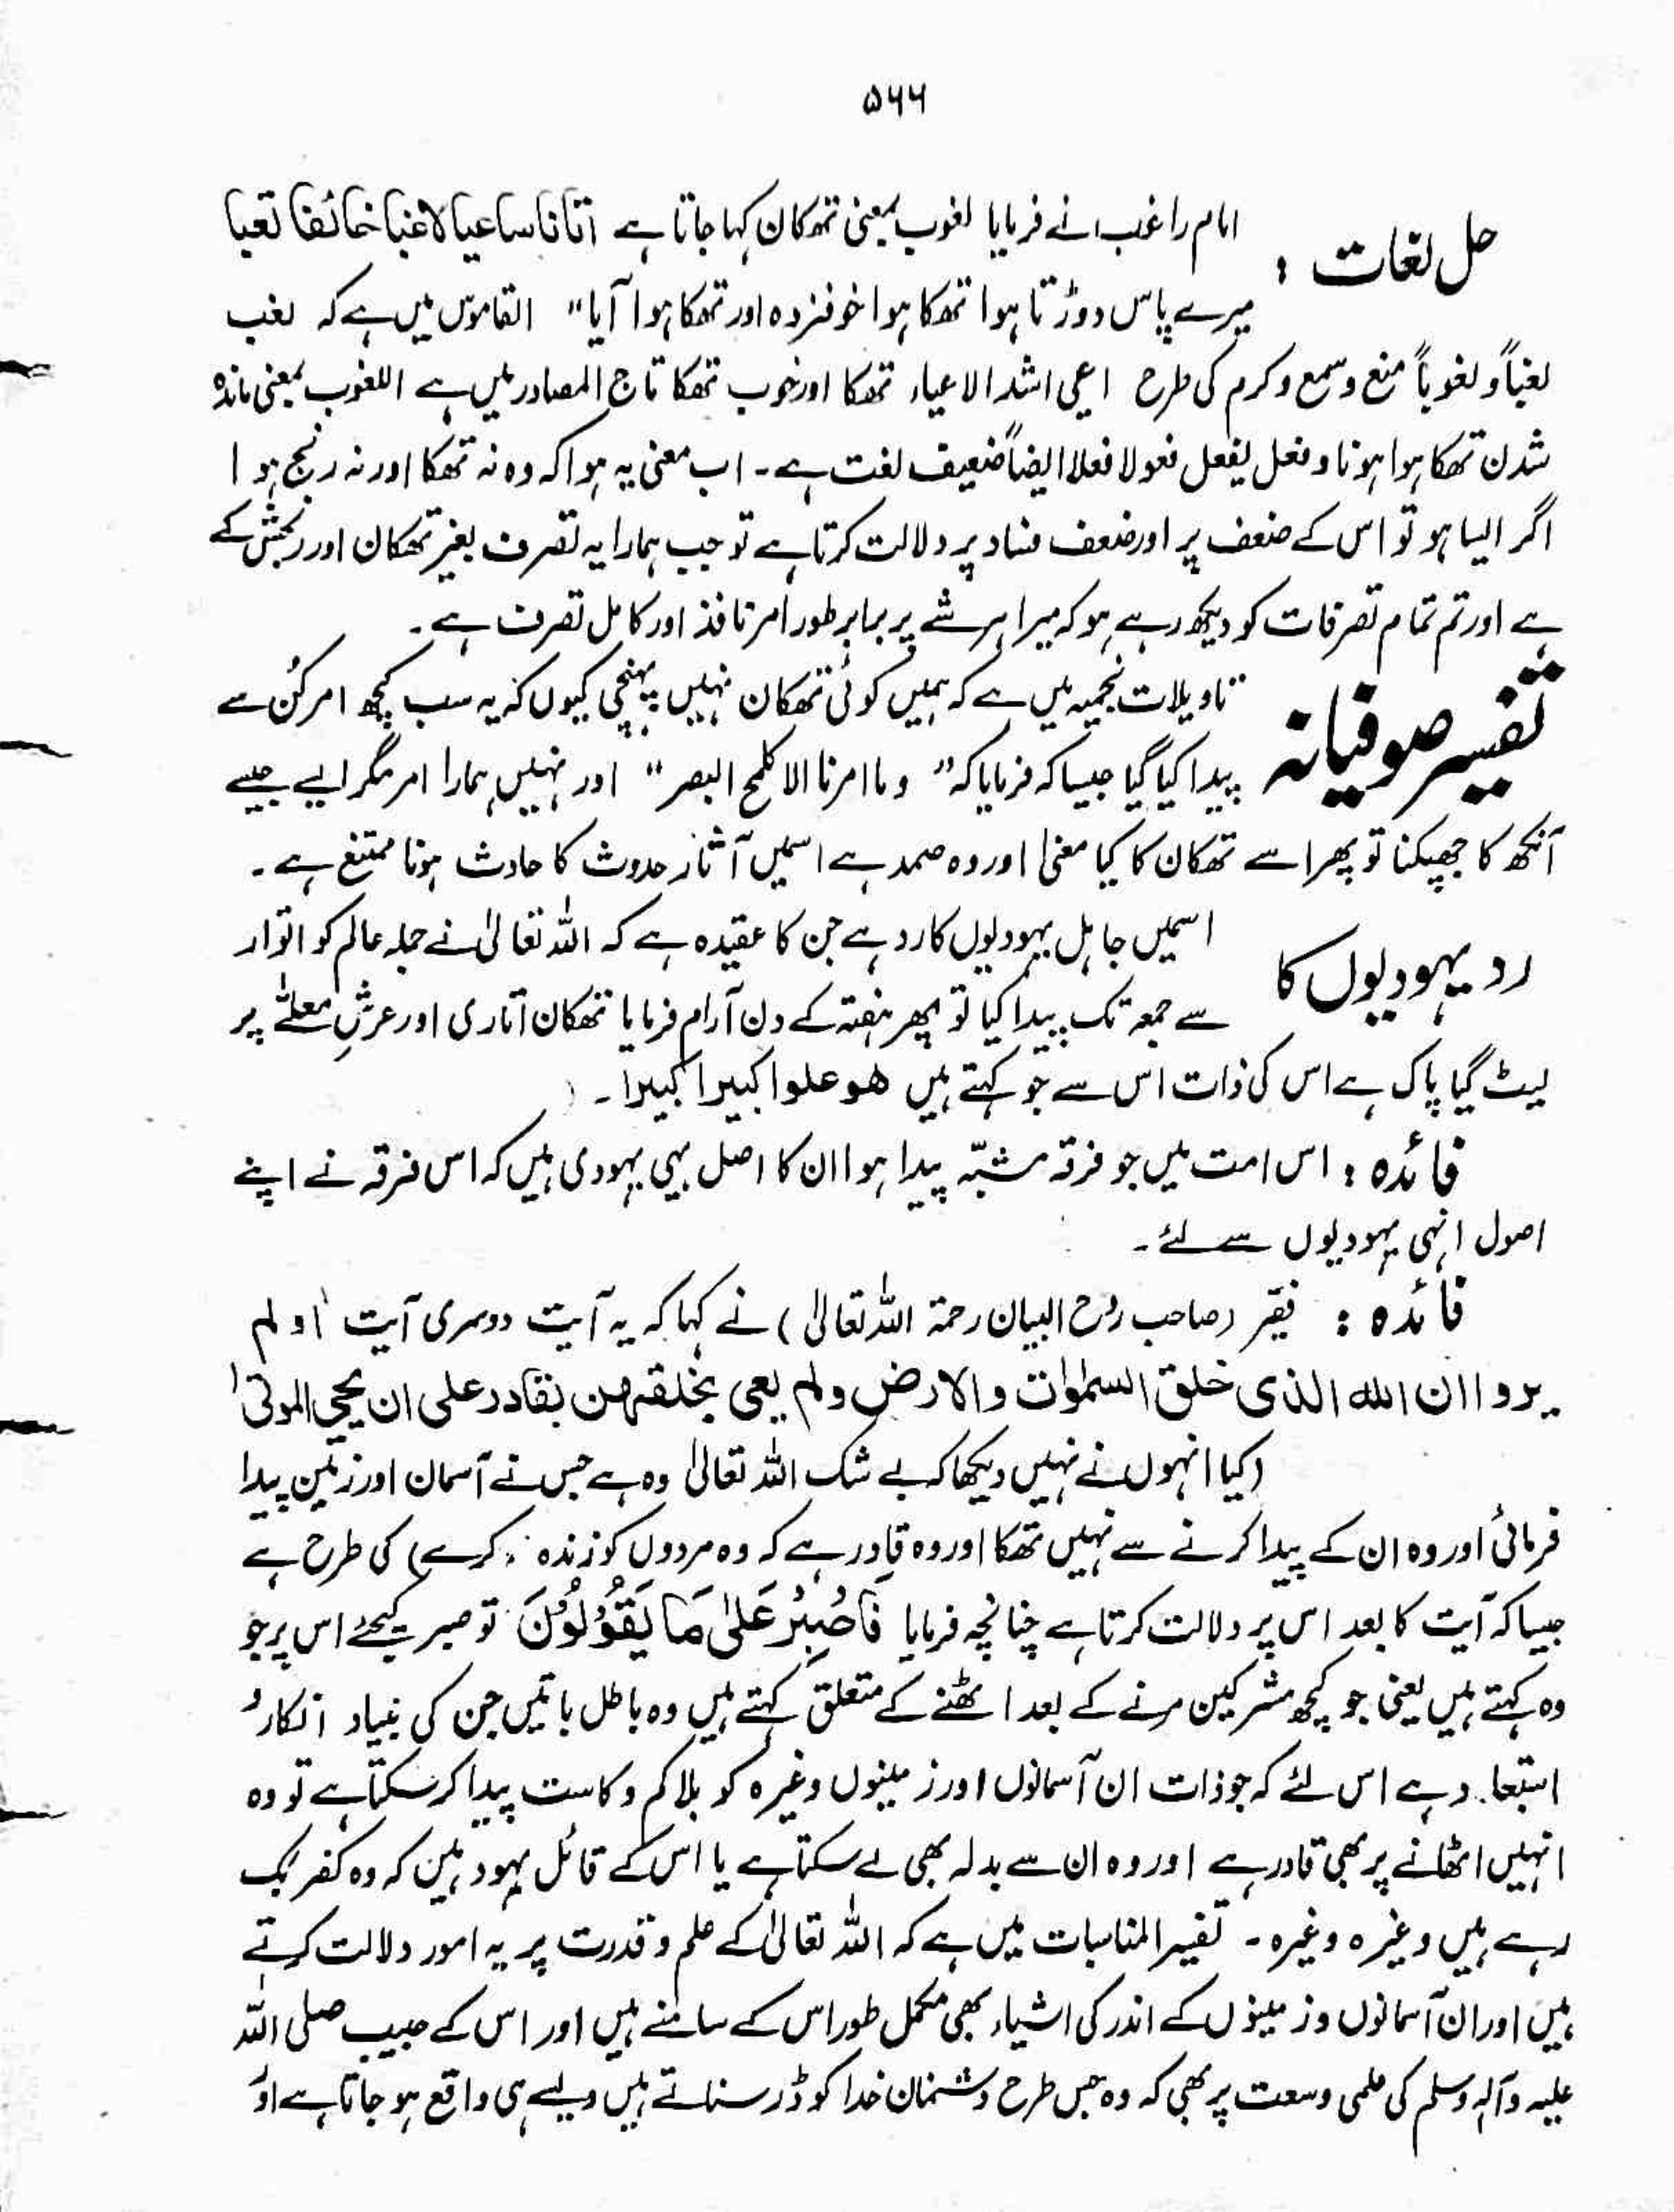 ۵۶۶
حل لغات : امام راغب نے فرمایا لغوب بمعنی تھکان کہا جاتا ہے اتانا ساعیا لاغبا خائفا تعبا
میرے پاس دوڑتا ہوا تھکا ہوا خوفزدہ اور تھکا ہوا آیا" القاموس میں ہے کہ لغب
لغباً و لغوباً منع و سمع و کرم کی طرح اعی اشد الاعیاء تھکا اور خوب تھکا تاج المصادر میں ہے اللغوب بمعنی ماندہ
شدن تھکا ہوا ہونا و فعل یفعل فعولا فعلا ایضاً ضعیف لغت ہے۔ اب معنی یہ ہوا کہ وہ نہ تھکا اور نہ رنج ہوا
اگر ایسا ہو تو اس کے ضعف پر اور ضعف فساد پر دلالت کرتا ہے تو جب ہمارا یہ تصرف بغیر تھکان اور رنجش کے
ہے اور تم تمام تصرفات کو دیکھ رہے ہو کہ میرا ہر شے پر برابر طور امر نافذ اور کامل تصرف ہے۔
تفسیر صوفیانہ تاویلات نجمیہ میں ہے کہ ہمیں کوئی تھکان نہیں پہنچی کیوں کہ یہ سب کچھ امر کُن سے
پیدا کیا گیا جیسا کہ فرمایا کہ" وما امرنا الا کلمح البصر" اور نہیں ہمارا امر مگر ایسے جیسے
آنکھ کا جھپکنا تو پھر اسے تھکان کا کیا معنیٰ اور وہ صمد ہے اسمیں آثار حدوث کا حادث ہونا ممتنع ہے۔
رد یہودیوں کا اسمیں جاہل یہودیوں کا رد ہے جن کا عقیدہ ہے کہ اللہ تعالیٰ نے جملہ عالم کو اتوار
سے جمعہ تک پیدا کیا تو پھر ہفتہ کے دن آرام فرمایا تھکان اتاری اور عرشِ معلّے پر
لیٹ گیا پاک ہے اس کی ذات اس سے جو کہتے ہیں ھو علوا کبیرا کبیرا۔
فائدہ : اس امت میں جو فرقہ مشبّہ پیدا ہوا ان کا اصل یہی یہودی ہیں کہ اس فرقہ نے اپنے
اصول انہی یہودیوں سے لئے۔
فائدہ : فقیر (صاحب روح البیان رحمۃ اللہ تعالیٰ) نے کہا کہ یہ آیت دوسری آیت 'اولم
یروا ان اللہ الذی خلق السمٰوات والارض ولم یعی بخلقھن بقادر علی ان یحی الموتیٰ'
(کیا انہوں نے نہیں دیکھا کہ بے شک اللہ تعالیٰ وہ ہے جس نے آسمان اور زمین پیدا
فرمائی اور وہ ان کے پیدا کرنے سے نہیں تھکا اور وہ قادر ہے کہ وہ مردوں کو زندہ کرے) کی طرح ہے
جیسا کہ آیت کا بعد اس پر دلالت کرتا ہے چنانچہ فرمایا فَاصْبِرْ عَلیٰ مَا یَقُوْلُوْنَ تو صبر کیجئے اس پر جو
وہ کہتے ہیں یعنی جو کچھ مشرکین مرنے کے بعد اٹھنے کے متعلق کہتے ہیں وہ باطل باتیں جن کی بنیاد انکار و
استبعاد ہے اس لئے کہ جو ذات ان آسمانوں اور زمینوں وغیرہ کو بلا کم و کاست پیدا کر سکتا ہے تو وہ
انہیں اٹھانے پر بھی قادر ہے اور وہ ان سے بدلہ بھی لے سکتا ہے یا اس کے قائل یہود ہیں کہ وہ کفر بک
رہے ہیں وغیرہ وغیرہ۔ تفسیر المناسبات میں ہے کہ اللہ تعالیٰ کے علم و قدرت پر یہ امور دلالت کرتے
ہیں اور ان آسمانوں و زمینوں کے اندر کی اشیاء بھی مکمل طور اس کے سامنے ہیں اور اس کے حبیب صلی اللہ
علیہ وآلہٖ وسلم کی علمی وسعت پر بھی کہ وہ جس طرح دشمنان خدا کو ڈر سناتے ہیں ویسے ہی واقع ہو جاتا ہے اور